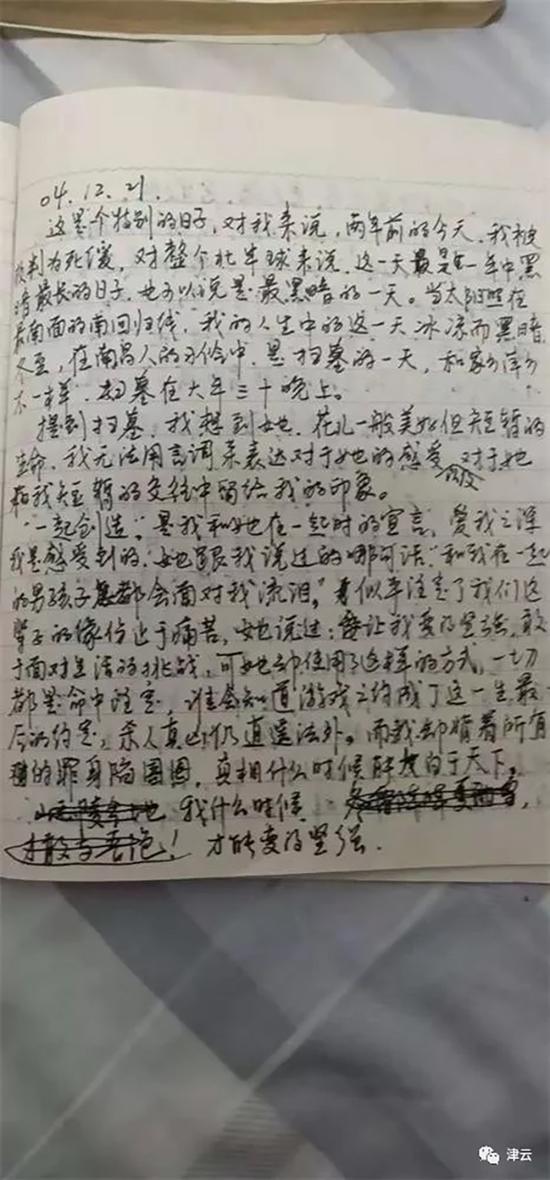 04.12.21.
这是个特别的日子,对我来说,两年前的今天,我被
判为死缓,对整个北半球来说,这一天最是一年中黑
暗最长的日子,也可以说是最黑暗的一天。当太阳照在
最南面的南回归线,我的人生中的这一天冰凉而黑暗
冬至,在南昌人的习俗中,是扫墓的一天,和家乡萍乡
不一样,扫墓在大年三十晚上。
提到扫墓,我想到她,花儿一般美好但短暂的
生命,我无法用言词来表达对于她的感受,以及对于她
和我短暂的交往中留给我的印象。
“一起创造”,是我和她在一起时的宣言,爱我之深
我是感受到的,她跟我说过的哪句话:“和我在一起
的男孩子都会面对我流泪。”似乎注定了我们这
辈子的缘份止于痛苦,她说过:要让我变的坚强,敢
于面对生活的挑战,可她却使用了这样的方式,一切
都是命中注定,谁会知道游戏之约成了这一生最
后的约定,杀人真凶仍逍遥法外。而我却背着所有
的罪身陷囹圄,真相什么时候能大白于天下,
我什么时候
才能变的坚强.
津云